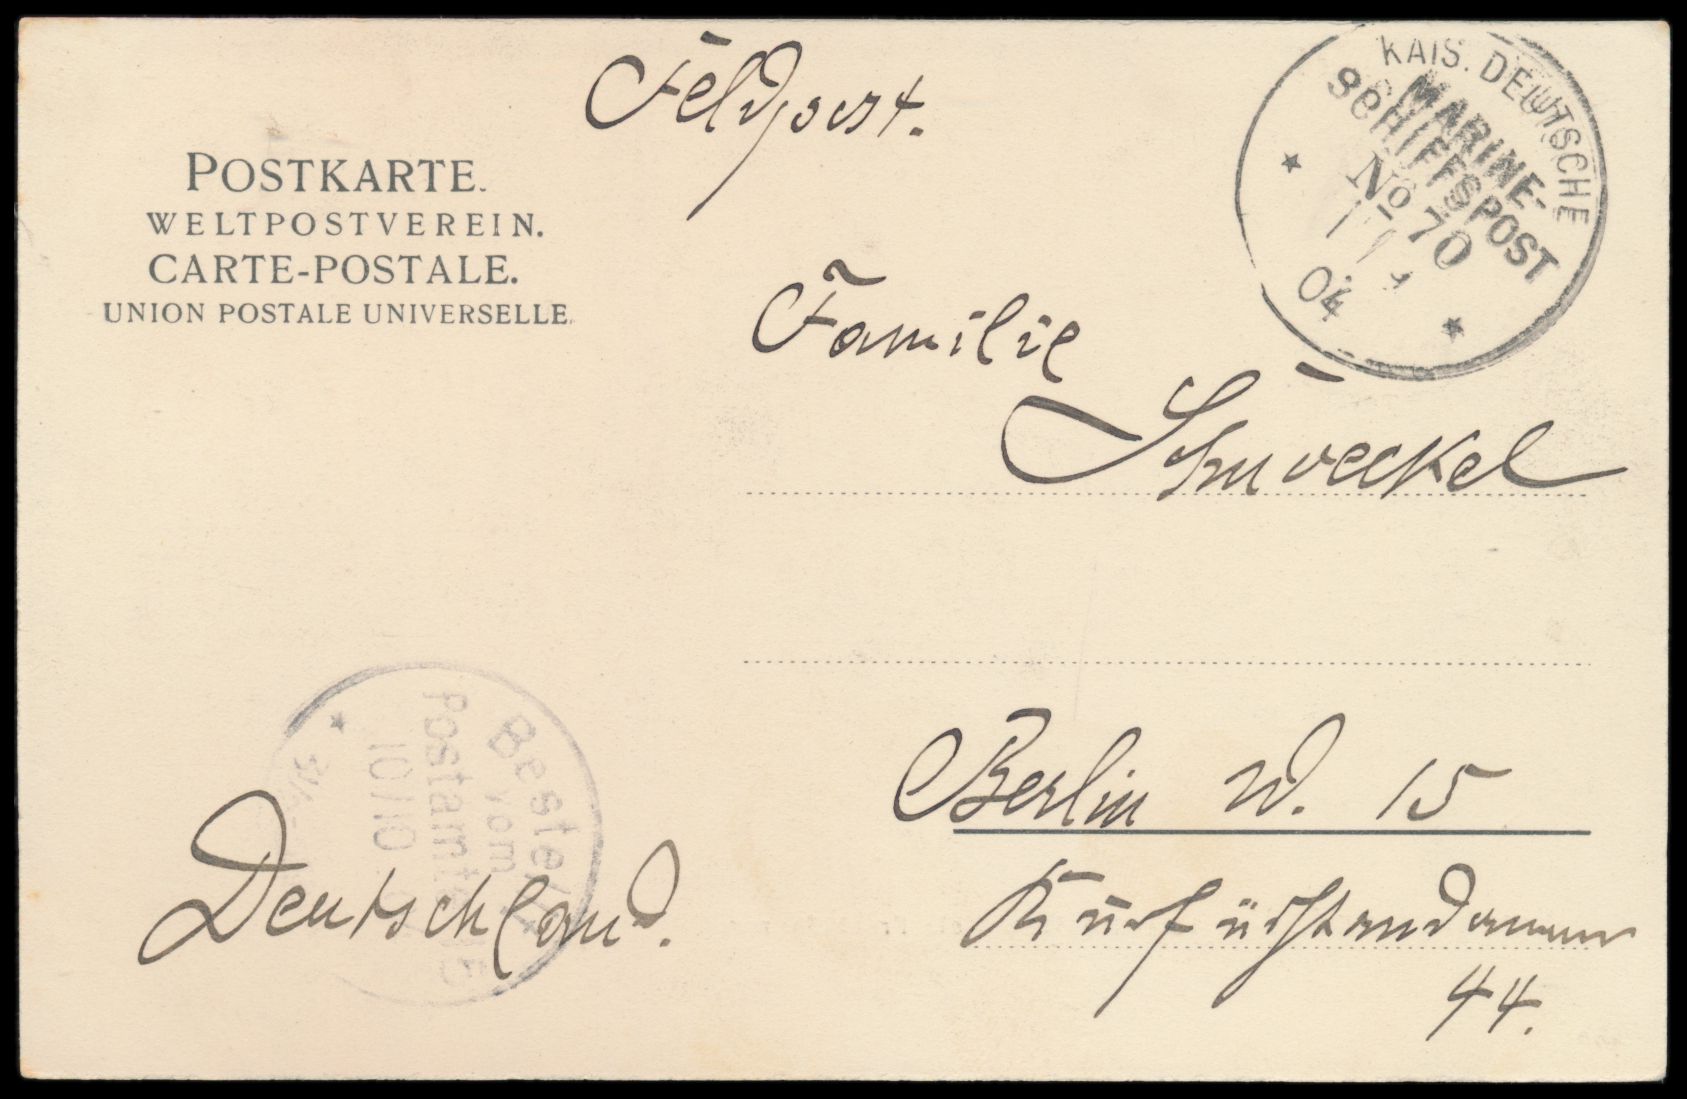 Feldpost.
KAIS. DEUTSCHE
MARINE-
SCHIFFSPOST
No 70
04
POSTKARTE.
WELTPOSTVEREIN.
CARTE-POSTALE.
UNION POSTALE UNIVERSELLE.
Familie
Schnöckel
Berlin W. 15
Kurfürstendamm
44.
Deutschland.
Bestellt
vom
Postamte
10/10